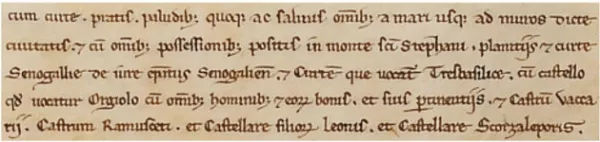 cum curte . pratis . paludib; quoq; ac salinis omib; a mari usq; ad muros dicte
ciuitatis . ⁊ cū omib; possessionib; positis in monte scī Stephani . planitijs ⁊ curte
Senogallie de iure comitatus Senogalien̄ . ⁊ Curtem que uocat̄ Tresbasilice . cū castello
qd̄ uocatur Orgiolo cū omib; hominib; ⁊ eoꝝ bonis . et suis ꝑtinentijs . ⁊ Castrū Vacca
rij . Castrum Ramusceti . et Castellare filioꝝ Leonis . et Castellare Scorzaleporis .